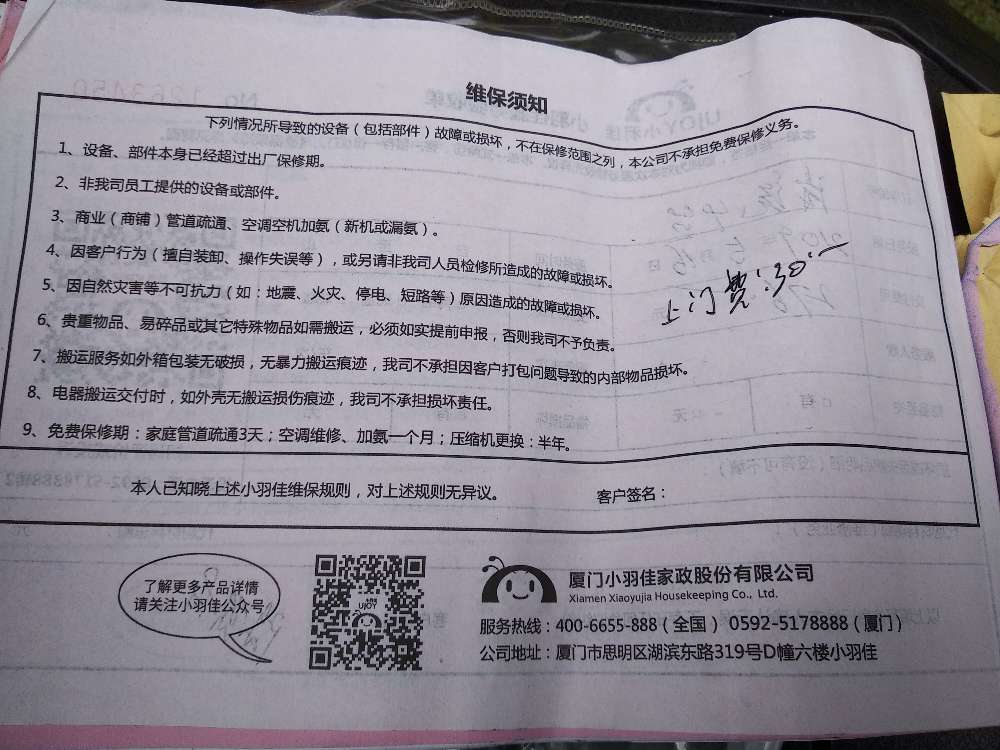 维保须知
下列情况所导致的设备（包括部件）故障或损坏，不在保修范围之列，本公司不承担免费保修义务。
1、设备、部件本身已经超过出厂保修期。
2、非我司员工提供的设备或部件。
3、商业（商铺）管道疏通、空调空机加氨（新机或漏氨）。
4、因客户行为（擅自装卸、操作失误等），或另请非我司人员检修所造成的故障或损坏。
5、因自然灾害等不可抗力（如：地震、火灾、停电、短路等）原因造成的故障或损坏。
上门费：30.一
6、贵重物品、易碎品或其它特殊物品如需搬运，必须如实提前申报，否则我司不予负责。
7、搬运服务如外箱包装无破损，无暴力搬运痕迹，我司不承担因客户打包问题导致的内部物品损坏。
8、电器搬运交付时，如外壳无搬运损伤痕迹，我司不承担损坏责任。
9、免费保修期：家庭管道疏通3天；空调维修、加氨一个月；压缩机更换：半年。
本人已知晓上述小羽佳维保规则，对上述规则无异议。 客户签名：
了解更多产品详情
请关注小羽佳公众号
UJOY
厦门小羽佳家政股份有限公司
Xiamen Xiaoyujia Housekeeping Co., Ltd.
服务热线：400-6655-888（全国） 0592-5178888（厦门）
公司地址：厦门市思明区湖滨东路319号D幢六楼小羽佳